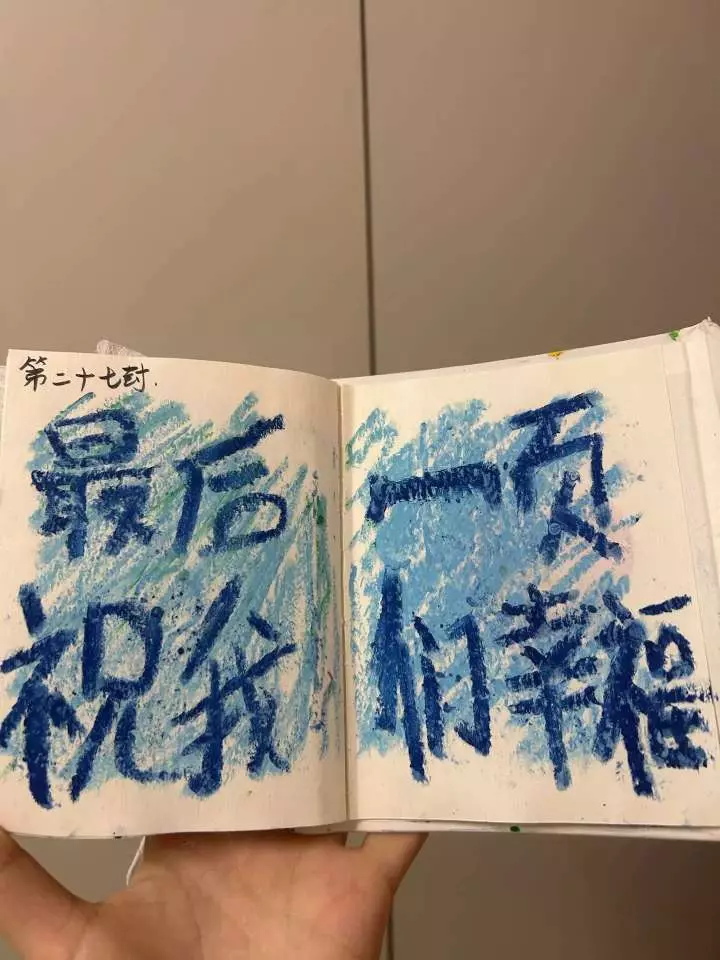 第二十七封.
最后一页
祝我们幸福